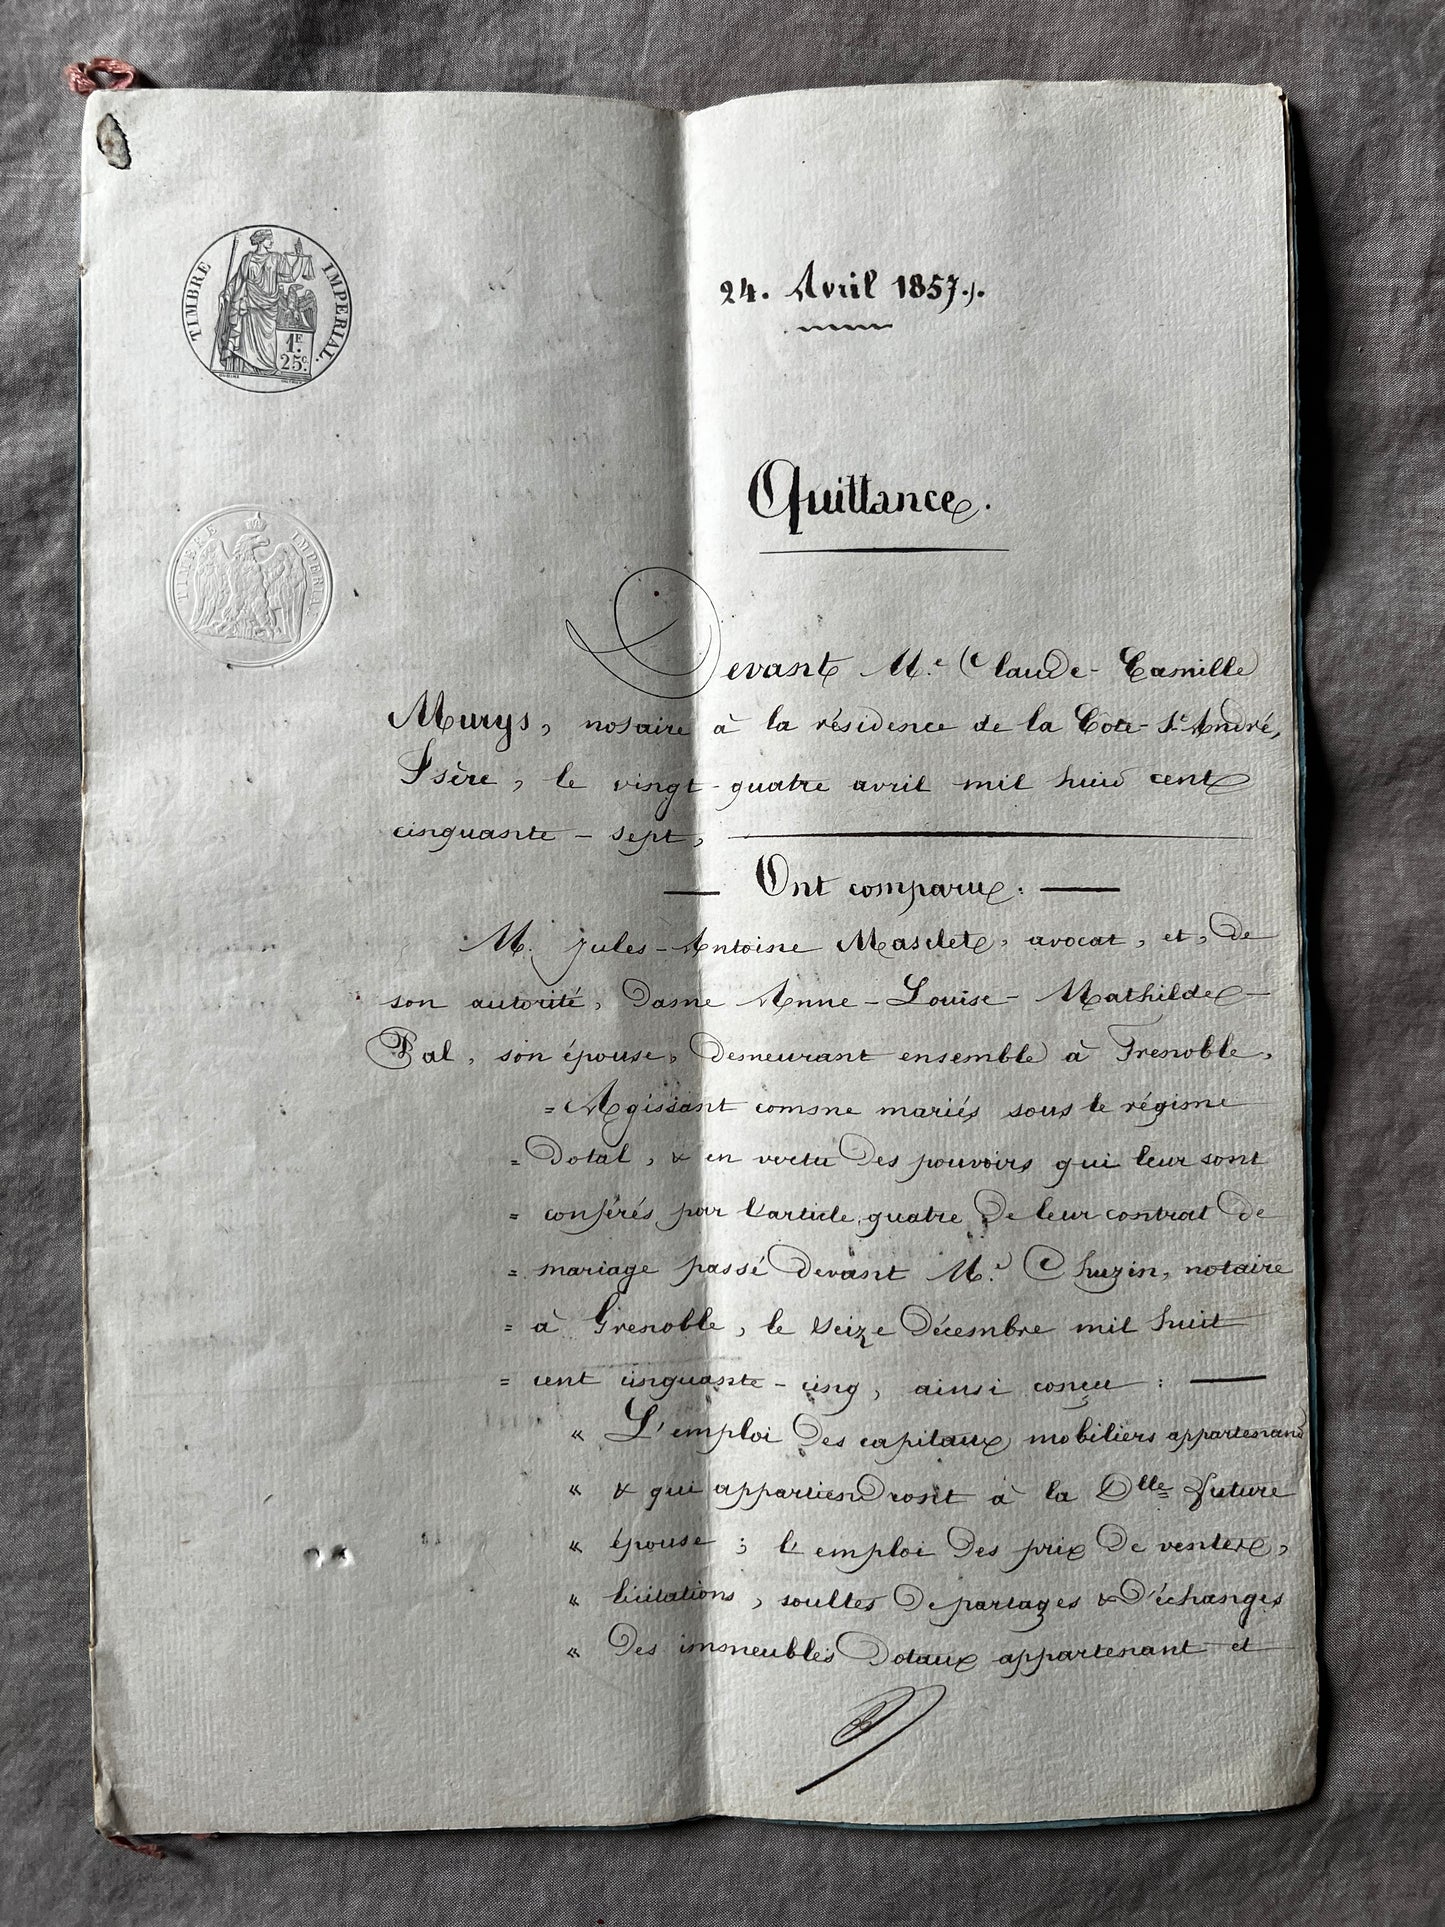 TIMBRE IMPERIAL.
1F.
25C.
TIMBRE IMPERIAL.
24. Avril 1857.
Quittance.
Devant Me. Claude-Camille
Murys, notaire à la résidence de la Côte-St-André,
Isère, le vingt-quatre avril mil huit cent
cinquante-sept,
Ont comparu:
M. Jules-Antoine Masclet, avocat, et, de
son autorité, Dame Anne-Louise-Mathilde-
Pal, son épouse, demeurant ensemble à Grenoble,
= Agissant comme mariés sous le régime
= Dotal, & en vertu des pouvoirs qui leur sont
= conférés par l'article quatre de leur contrat de
= mariage passé devant Me. Chuzin, notaire
= à Grenoble, le seize Décembre mil huit
= cent cinquante-cinq, ainsi conçu :
« L'emploi des capitaux mobiliers appartenant
« & qui appartiendront à la Dlle future
« épouse ; l'emploi des prix de ventes,
« licitations, soultes de partages & d'échanges
« Des immeubles Dotaux appartenant et